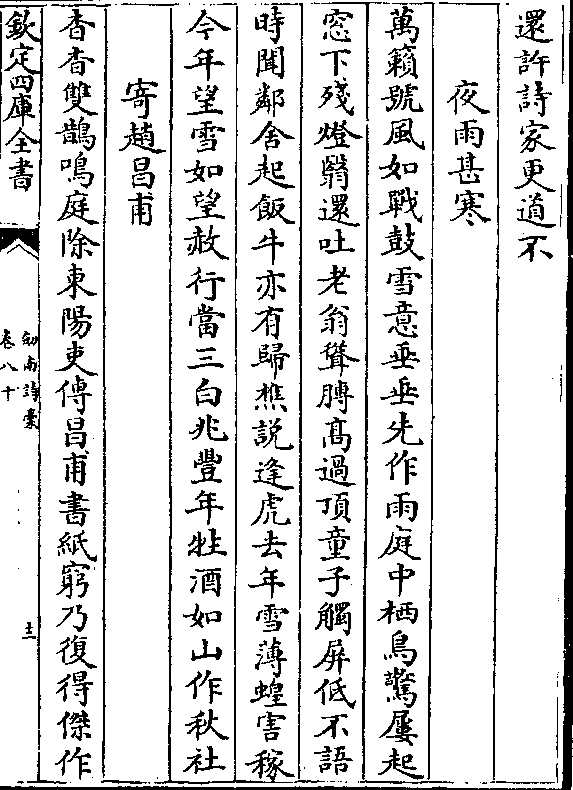 還許詩家更道不
夜雨甚寒
萬籟號風如戰鼓雪意垂垂先作雨庭中栖鳥驚屢起
窓下殘燈翳還吐老翁聳膊髙過頂童子觸屏低不語
時聞鄰舎起飯牛亦有歸樵説逢虎去年雪薄蝗害稼
今年望雪如望赦行當三白兆豐年牲酒如山作秋社
寄趙昌甫
杳杳雙鵲鳴庭除東陽吏傳昌甫書紙窮乃復得傑作
欽定四庫全書
劍南詩稾
卷八十
十三